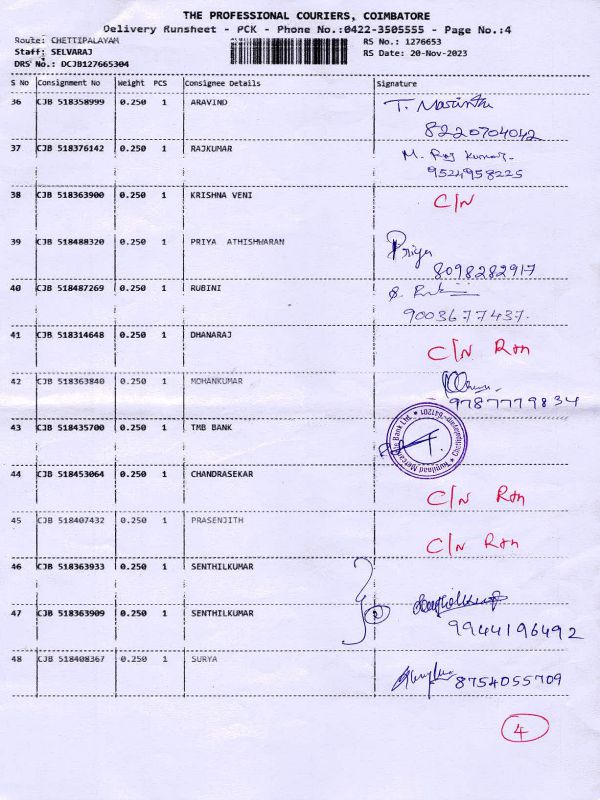 THE PROFESSIONAL COURIERS, COIMBATORE
Delivery Runsheet - PCK - Phone No.:0422-3505555 - Page No.:4
Route: CHETTIPALAYAM
RS No.: 1276653
Staff: SELVARAJ
RS Date: 20-Nov-2023
DRS No.: DCJB127665304
S No Consignment No Weight PCS Consignee Details Signature
36 CJB 518358999 0.250 1 ARAVIND T.
8220704042
37 CJB 518376142 0.250 1 RAJKUMAR M. Raj Kumar.
9524958225
38 CJB 518363900 0.250 1 KRISHNA VENI C/N
39 CJB 518488320 0.250 1 PRIYA ATHISHWARAN Priya
8098282917
40 CJB 518487269 0.250 1 RUBINI
9003677437.
41 CJB 518314648 0.250 1 DHANARAJ C/N Rtn
42 CJB 518363840 0.250 1 MOHANKUMAR
9787779834
43 CJB 518435700 0.250 1 TMB BANK
Tamilnad Mercantile Bank Ltd. Chettipalayam-641201
44 CJB 518453064 0.250 1 CHANDRASEKAR C/N Rtn
45 CJB 518407432 0.250 1 PRASENJITH C/N Rtn
46 CJB 518363933 0.250 1 SENTHILKUMAR
47 CJB 518363909 0.250 1 SENTHILKUMAR 2
9944196492
48 CJB 518408367 0.250 1 SURYA 8754055709
4